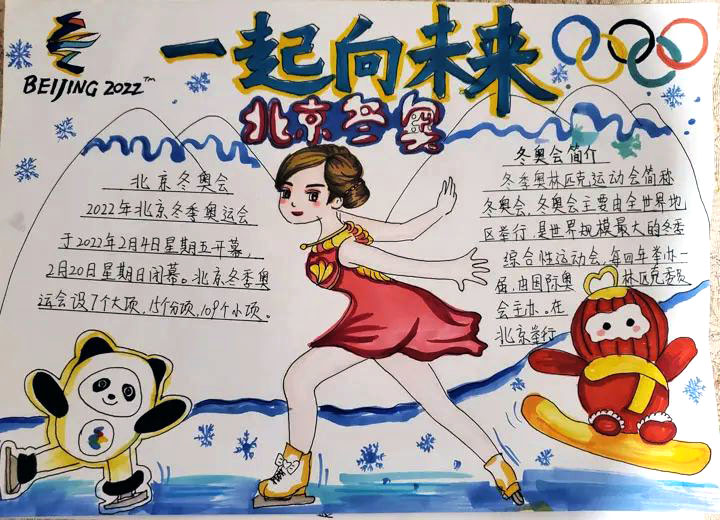 BEIJING 2022™
一起向未来
北京冬奥
北京冬奥会
2022年北京冬季奥运会
于2022年2月4日星期五开幕,
2月20日星期日闭幕。北京冬季奥
运会设7个大项,15个分项,109个小项。
冬奥会简介
冬季奥林匹克运动会简称
冬奥会,冬奥会主要由全世界地
区举行,是世界规模最大的冬季
综合性运动会,每四年举办一
届,由国际奥林匹克委员
会主办,在
北京举行